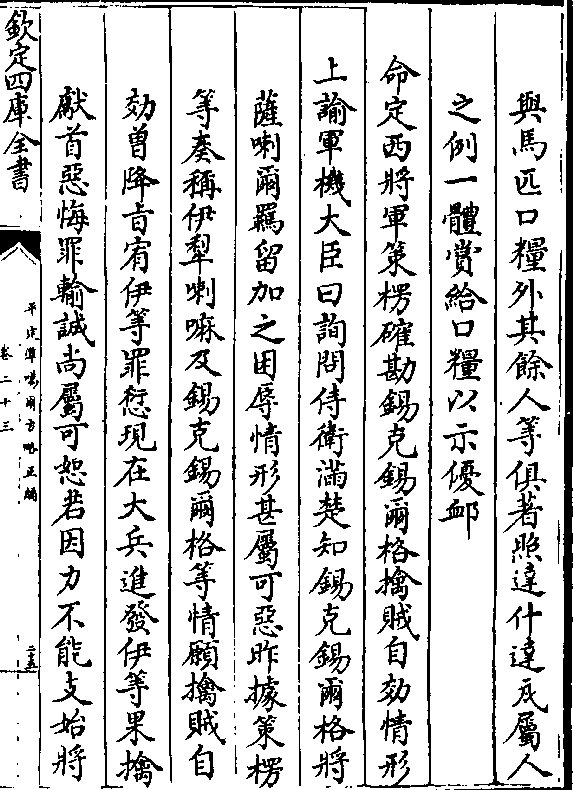 與馬匹口糧外其餘人等俱著照達什達瓦屬人
之例一體賞給口糧以示優䘏
命定西將軍策楞確勘錫克錫爾格擒賊自効情形
上諭軍機大臣曰詢問侍衛滿楚知錫克錫爾格將
薩喇爾羈留加之困辱情形甚屬可惡昨據策楞
等奏稱伊犂喇嘛及錫克錫爾格等情願擒賊自
効曽降㫖宥伊等罪愆現在大兵進發伊等果擒
獻首惡悔罪輸誠尚屬可恕若因力不能支始將
欽定四庫全書
平定準噶爾方略正編
卷二十三
二十五